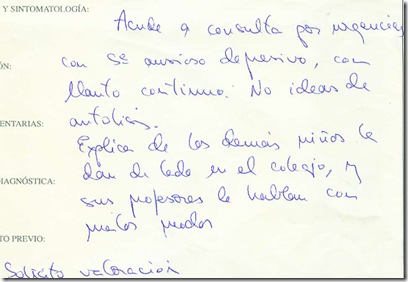 Y SINTOMATOLOGÍA:
Acude a consulta por urgencias
ÓN:
con Sº ansioso depresivo, con
llanto continuo. No ideas de
ENTARIAS:
autolisis.
Explica de los demás niños le
dan de lado en el colegio, y
DIAGNÓSTICA:
sus profesores le hablan con
malos modos
TO PREVIO:
Solicito valoración